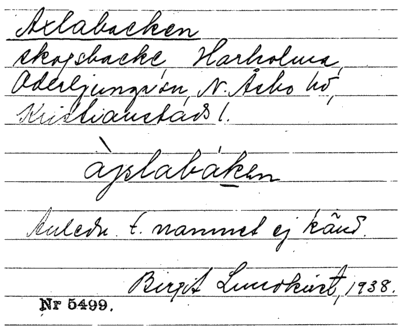 Axlabacken
skogsbacke, Harholma,
Oderljunga sn, N. Åsbo hd,
Kristianstads l.
àjslabáken
Anledn. t. namnet ej känd.
Birgit Lundkvist, 1938.
Nr 5499.